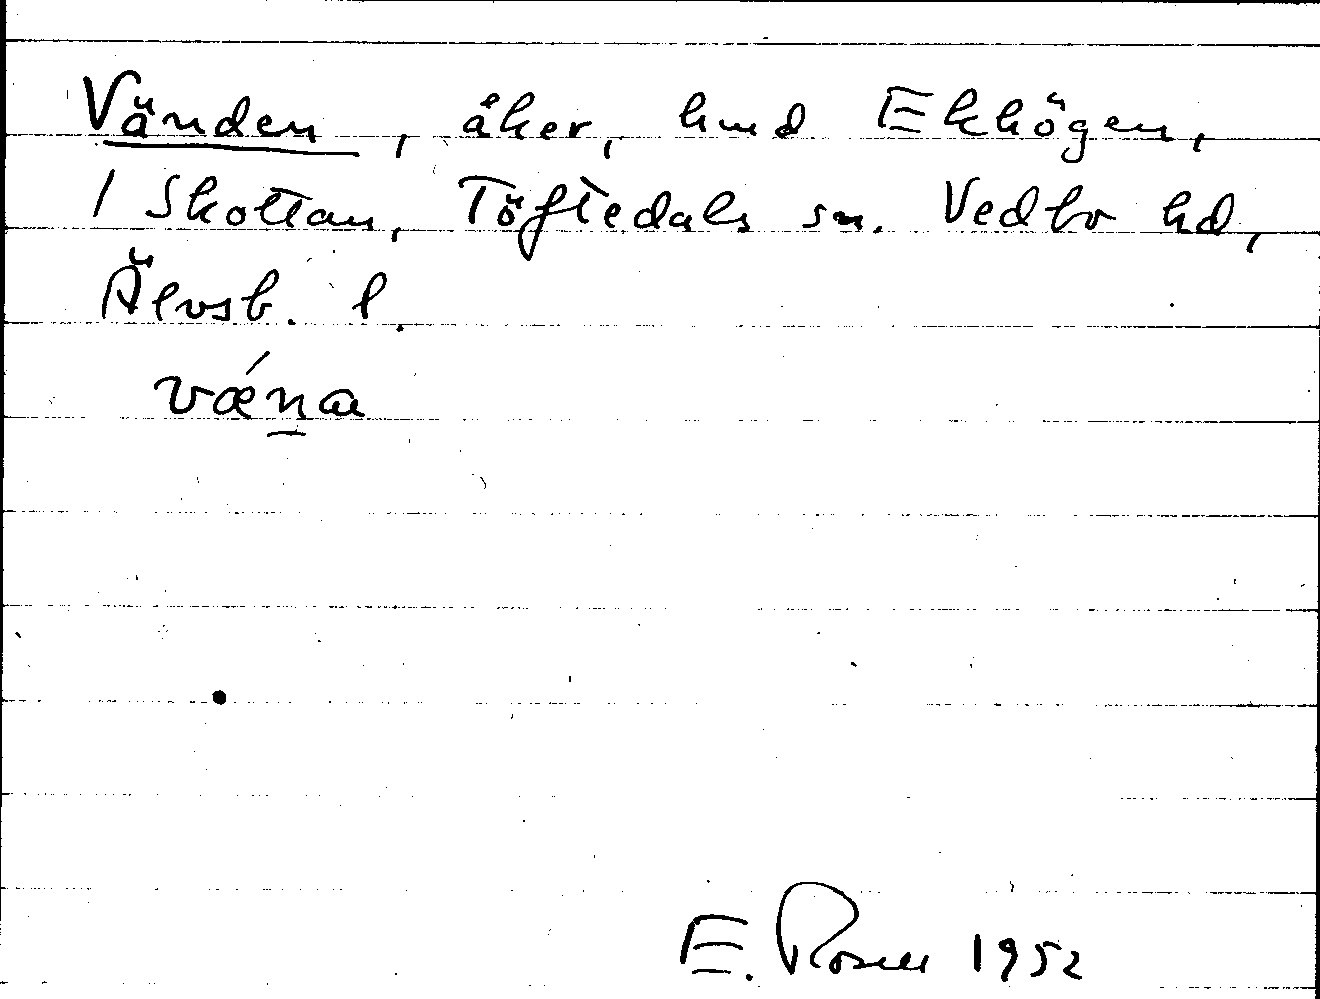 Vänden, åker, hmd Ekhögen,
1 Skottan, Töftedals sn. Vedbo hd,
Älvsb. l.
vǽna
E. Rosell 1952